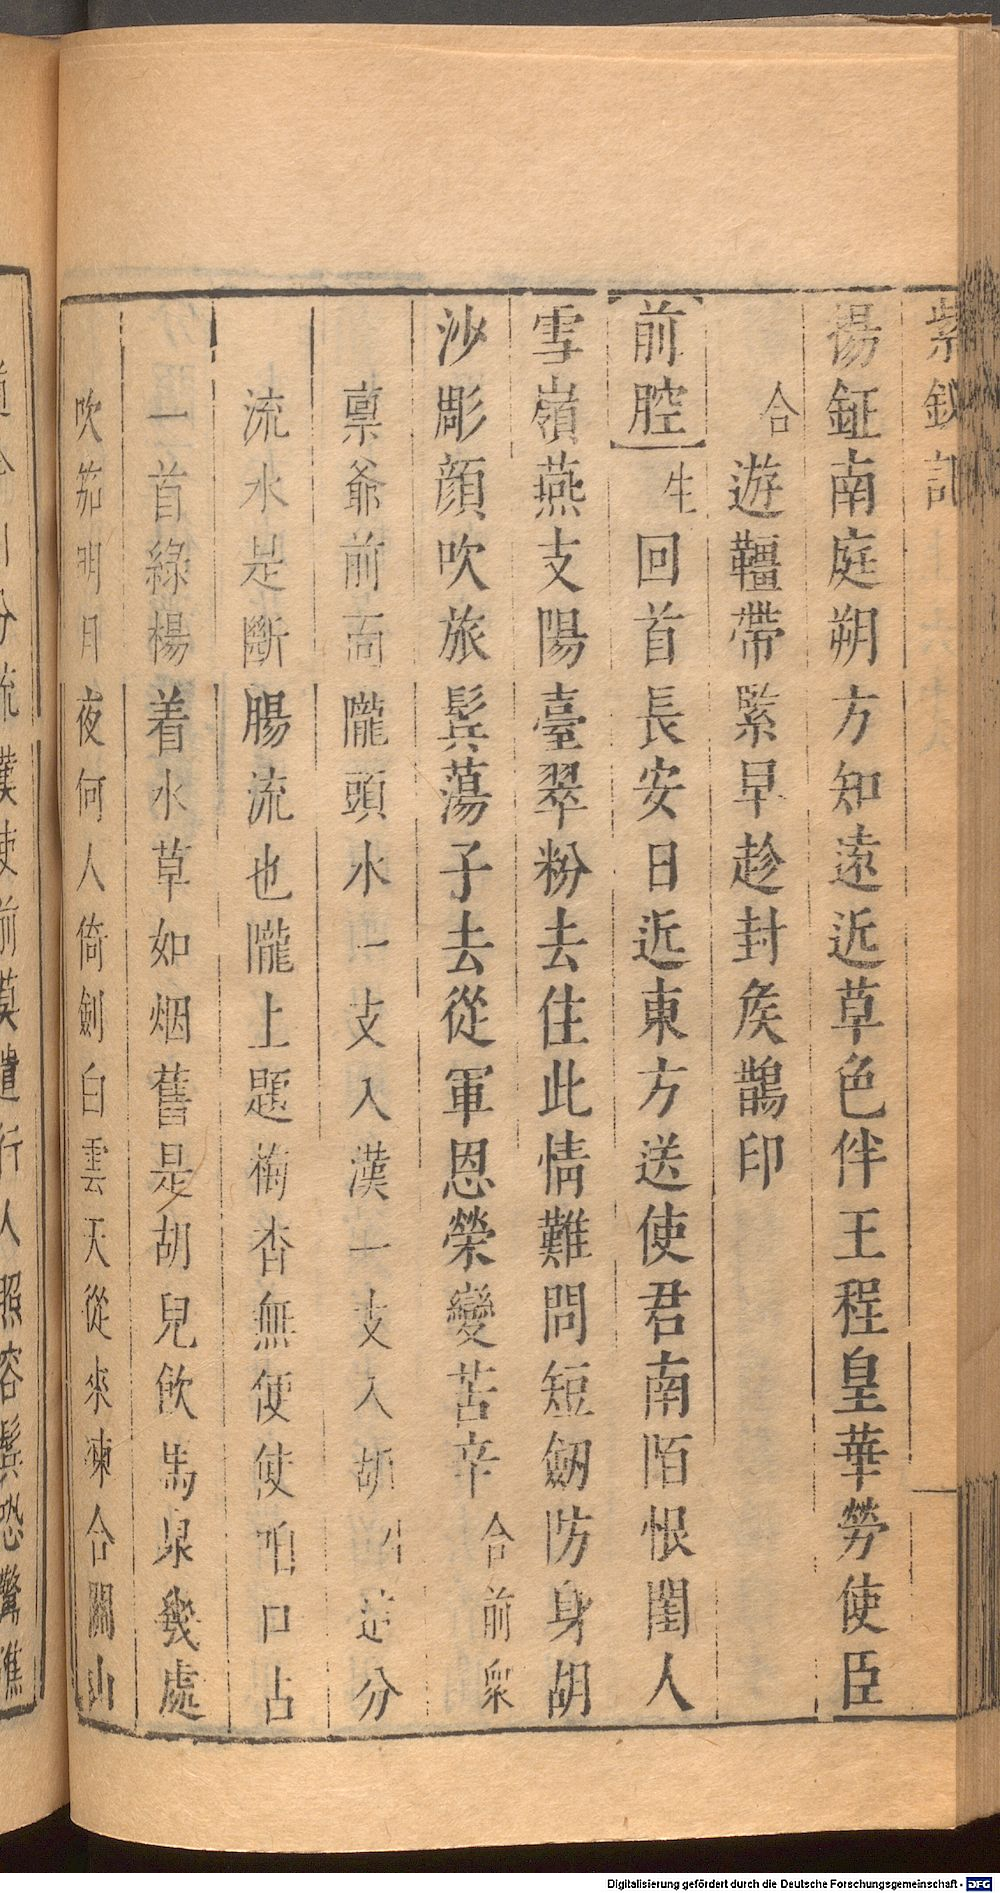 紫釵記
揚鉦南庭朔方知遠近草色伴王程皇華勞使臣
合遊韁帶緊早趁封侯鵲印
前腔 生回首長安日近東方送使君南陌恨閨人
雪嶺燕支陽臺翠粉去住此情難問短劒防身胡
沙彫顔吹旅鬂蕩子去從軍恩榮變苦辛 合前衆
稟爺前面隴頭水一支入漢一支入胡 生這分
流水是斷腸流也隴上題樹杏無便使咱口占
一首綠楊着水草如烟舊是胡兒飲馬泉幾處
吹笳明月夜何人倚劍白雲天從來凍合關山
分流漢使前莫遣行人照容鬂恐驚憔
Digitalisierung gefördert durch die Deutsche Forschungsgemeinschaft - DFG